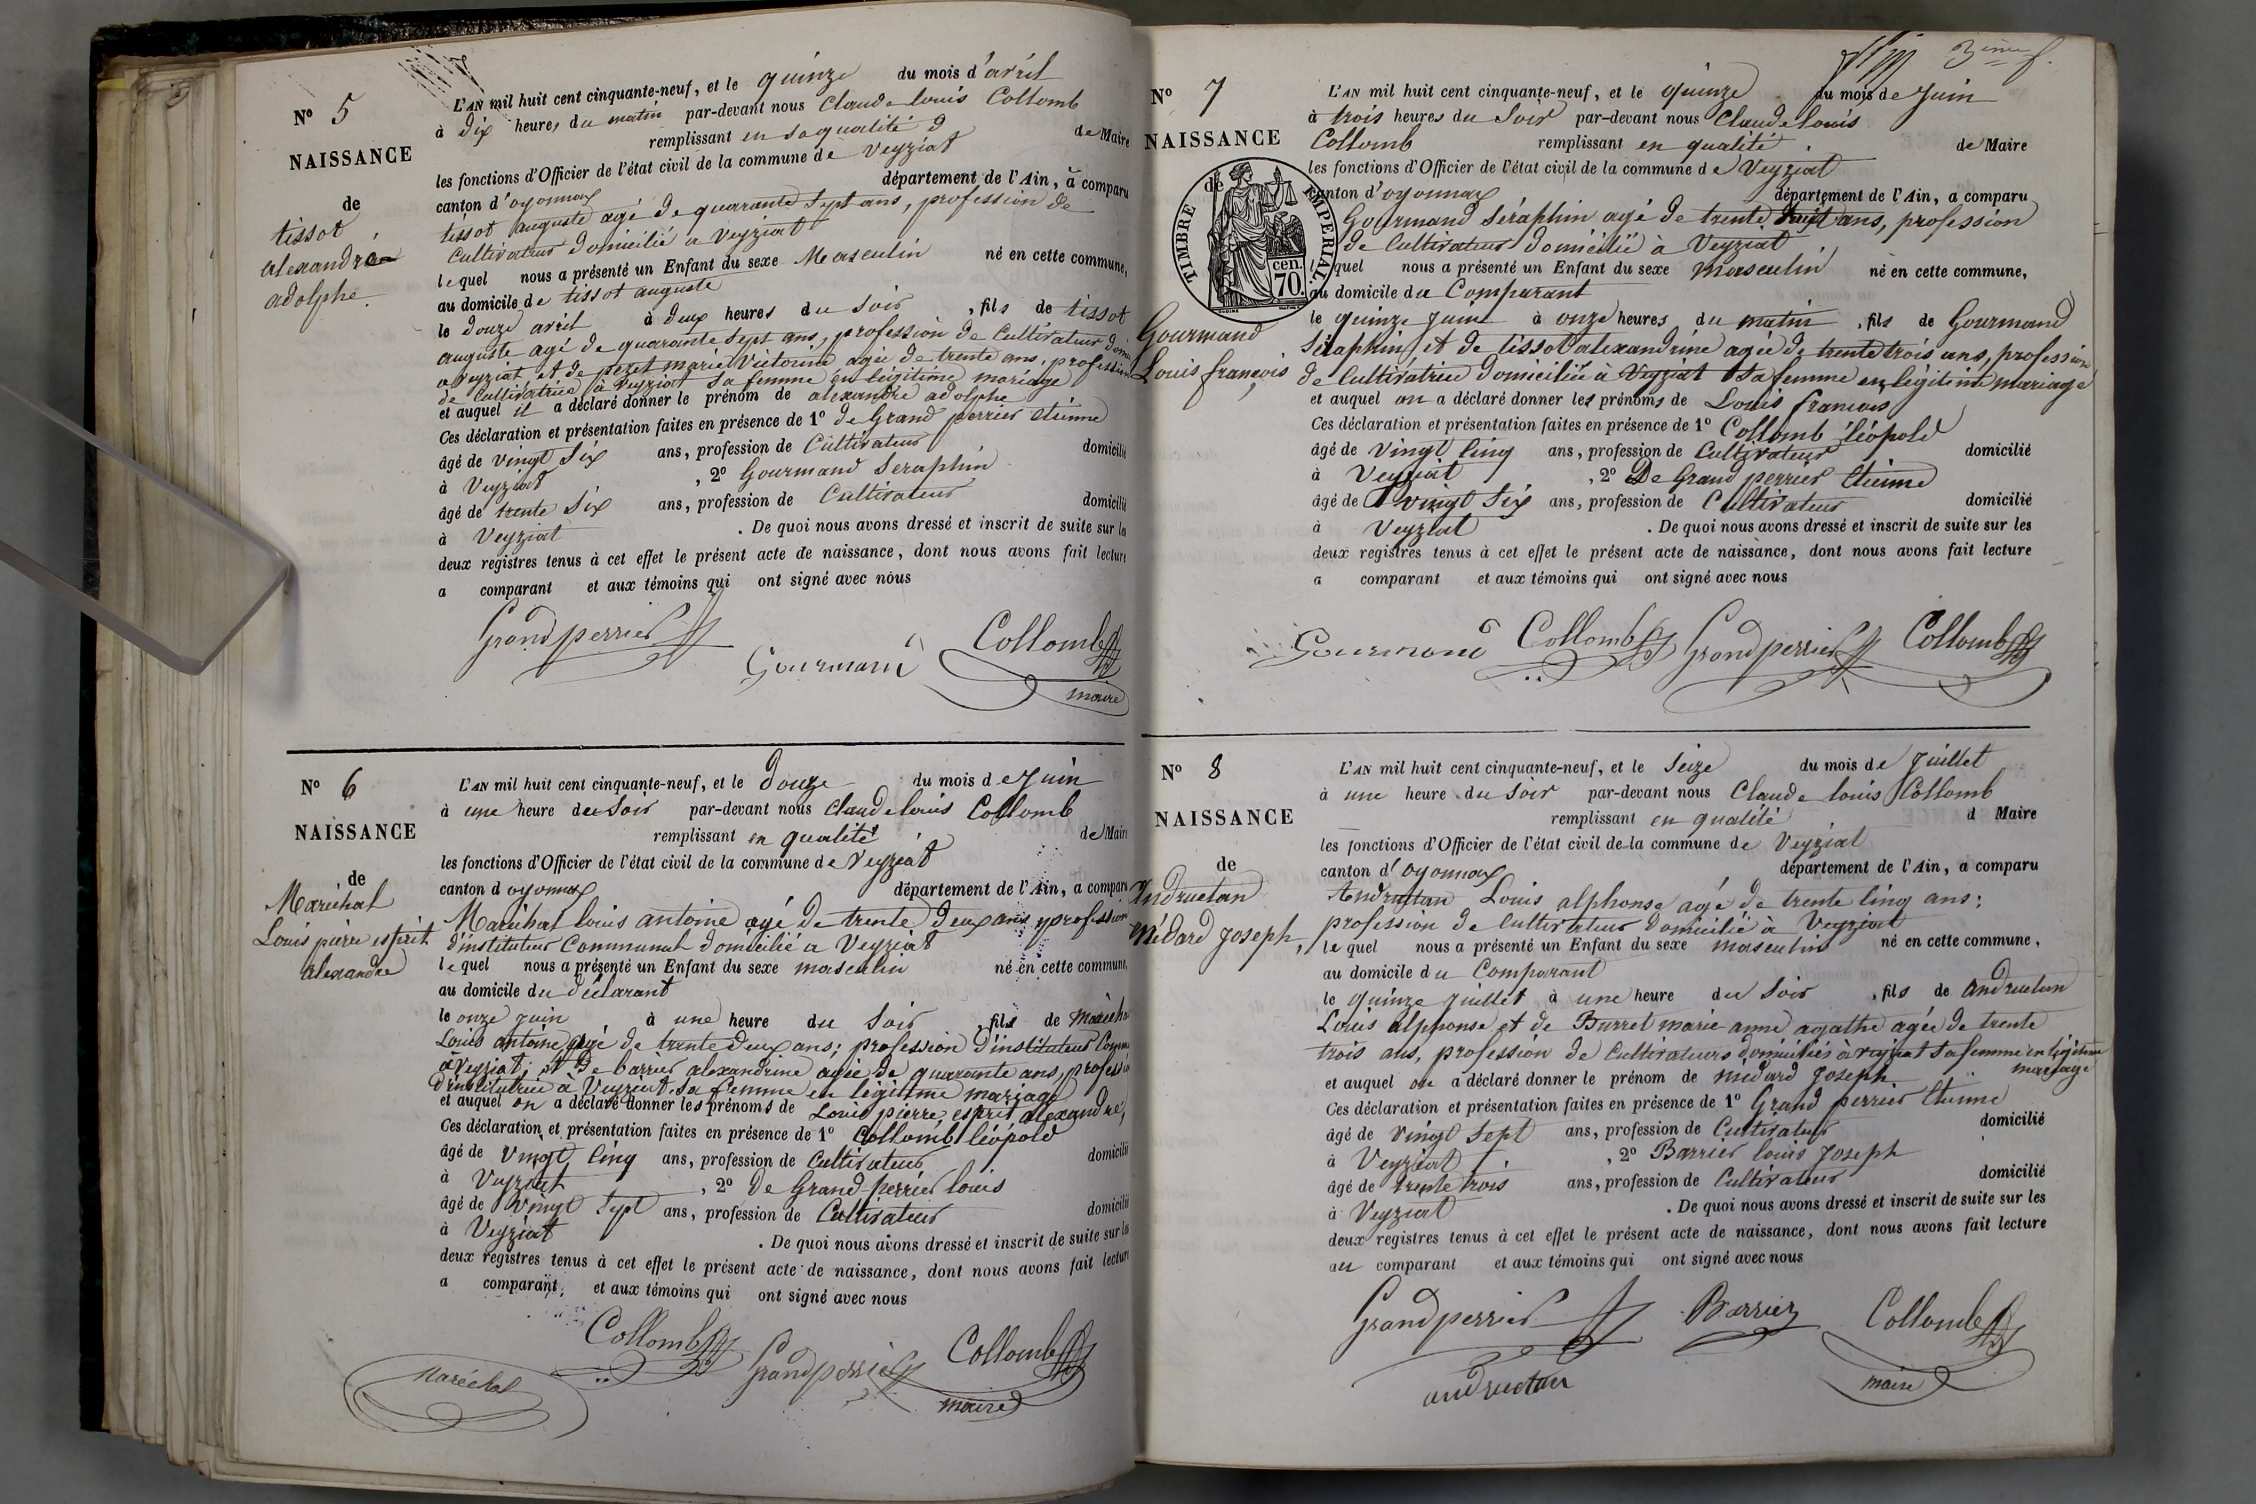 N° 5
NAISSANCE
de
tissot
alexandre
adolphe.
L'AN mil huit cent cinquante-neuf, et le quinze du mois d'avril
à dix heures du matin par-devant nous Claude louis Collomb
remplissant en sa qualité d de Maire
les fonctions d'Officier de l'état civil de la commune de Veyziat
canton d'oyonnax département de l'Ain, a comparu
tissot auguste agé de quarante sept ans, profession de
Cultivateur domicilié a Veyziat
lequel nous a présenté un Enfant du sexe Masculin né en cette commune,
au domicile de tissot auguste
le douze avril à deux heures du soir, fils de tissot
auguste agé de quarante sept ans, profession de Cultivateur
a veyziat et de petet marie Victorine agée de trente ans, profession
de Cultivatrice à Veyziat sa femme en légitime mariage
et auquel il a déclaré donner le prénom de alexandre adolphe
Ces déclaration et présentation faites en présence de 1° de Grand perrier étienne
âgé de vingt six ans, profession de Cultivateur domicilié
à Veyziat, 2° Gourmand Seraphin
âgé de trente six ans, profession de Cultivateur domicilié
à Veyziat. De quoi nous avons dressé et inscrit de suite sur la
deux registres tenus à cet effet le présent acte de naissance, dont nous avons fait lecture
a comparant et aux témoins qui ont signé avec nous
Grandperrier
Gourmand
Collomb
maire
N° 6
NAISSANCE
de
Maréchal
Louis pierre esprit
alexandre
L'AN mil huit cent cinquante-neuf, et le douze du mois de Juin
à une heure du Soir par-devant nous Claude louis Collomb
remplissant en qualité de Maire
les fonctions d'Officier de l'état civil de la commune de Veyziat
canton d oyonnax département de l'Ain, a comparu
Maréchal louis antoine agé de trente deux ans profession
d'instituteur Communal domicilié a Veyziat
lequel nous a présenté un Enfant du sexe masculin né en cette commune,
au domicile du déclarant
le onze juin à une heure du Soir, fils de Maréchal
Louis antoine agé de trente deux ans; profession d'instituteur
à Veyziat; et de barrier alexandrine agée de quarante ans, profession
d'institutrice à Veyziat sa femme en légitime mariage
et auquel on a déclaré donner les prénoms de Louis pierre esprit alexandre,
Ces déclaration et présentation faites en présence de 1° Collomb léopold
âgé de vingt cinq ans, profession de Cultivateur domicilié
à Veyziat, 2° de Grand perrier louis
âgé de vingt sept ans, profession de Cultivateur domicilié
à Veyziat. De quoi nous avons dressé et inscrit de suite sur les
deux registres tenus à cet effet le présent acte de naissance, dont nous avons fait lecture
a comparant, et aux témoins qui ont signé avec nous
Collomb
Maréchal
Grandperrier
Collomb
maire
3ème f.
N° 7
NAISSANCE
de
TIMBRE IMPERIAL.
cen.
70.
Gourmand
Louis françois
L'AN mil huit cent cinquante-neuf, et le quinze du mois de Juin
à trois heures du Soir par-devant nous Claude louis
Collomb remplissant en qualité de Maire
les fonctions d'Officier de l'état civil de la commune de Veyziat
canton d'oyonnax département de l'Ain, a comparu
Gourmand Séraphin agé de trente ans, profession
de Cultivateur domicilié à Veyziat
lequel nous a présenté un Enfant du sexe masculin né en cette commune,
au domicile du Comparant
le quinze juin à onze heures du matin, fils de Gourmand
Séraphin, et de tissot alexandrine agée de trente trois ans, profession
de Cultivatrice domiciliée à Veyziat sa femme en légitime mariage
et auquel on a déclaré donner les prénoms de Louis francois
Ces déclaration et présentation faites en présence de 1° Collomb léopold
âgé de vingt cinq ans, profession de Cultivateur domicilié
à Veyziat, 2° De Grand perrier étienne
âgé de vingt six ans, profession de Cultivateur domicilié
à Veyziat. De quoi nous avons dressé et inscrit de suite sur les
deux registres tenus à cet effet le présent acte de naissance, dont nous avons fait lecture
a comparant et aux témoins qui ont signé avec nous
Gourmand Collomb Grandperrier Collomb
N° 8
NAISSANCE
de
Andruetan
Médard Joseph,
L'AN mil huit cent cinquante-neuf, et le seize du mois de Juillet
à une heure du soir par-devant nous Claude louis Collomb
remplissant en qualité d Maire
les fonctions d'Officier de l'état civil de la commune de Veyziat
canton d'oyonnax département de l'Ain, a comparu
Andruetan Louis alphonse agé de trente cinq ans;
profession de Cultivateur domicilié à Veyziat
lequel nous a présenté un Enfant du sexe masculin né en cette commune,
au domicile du Comparant
le quinze juillet à une heure du Soir, fils de andruetan
Louis alphonse et de Burret marie anne agathe agée de trente
trois ans, profession de Cultivateurs domiciliés à veyziat sa femme en légitime
mariage
et auquel on a déclaré donner le prénom de médard Joseph
Ces déclaration et présentation faites en présence de 1° Grand perrier étienne
âgé de vingt sept ans, profession de Cultivateur domicilié
à Veyziat, 2° Barrier louis Joseph
âgé de trente trois ans, profession de Cultivateur domicilié
à Veyziat. De quoi nous avons dressé et inscrit de suite sur les
deux registres tenus à cet effet le présent acte de naissance, dont nous avons fait lecture
au comparant et aux témoins qui ont signé avec nous
Grandperrier Barrier Collomb
andruetan maire